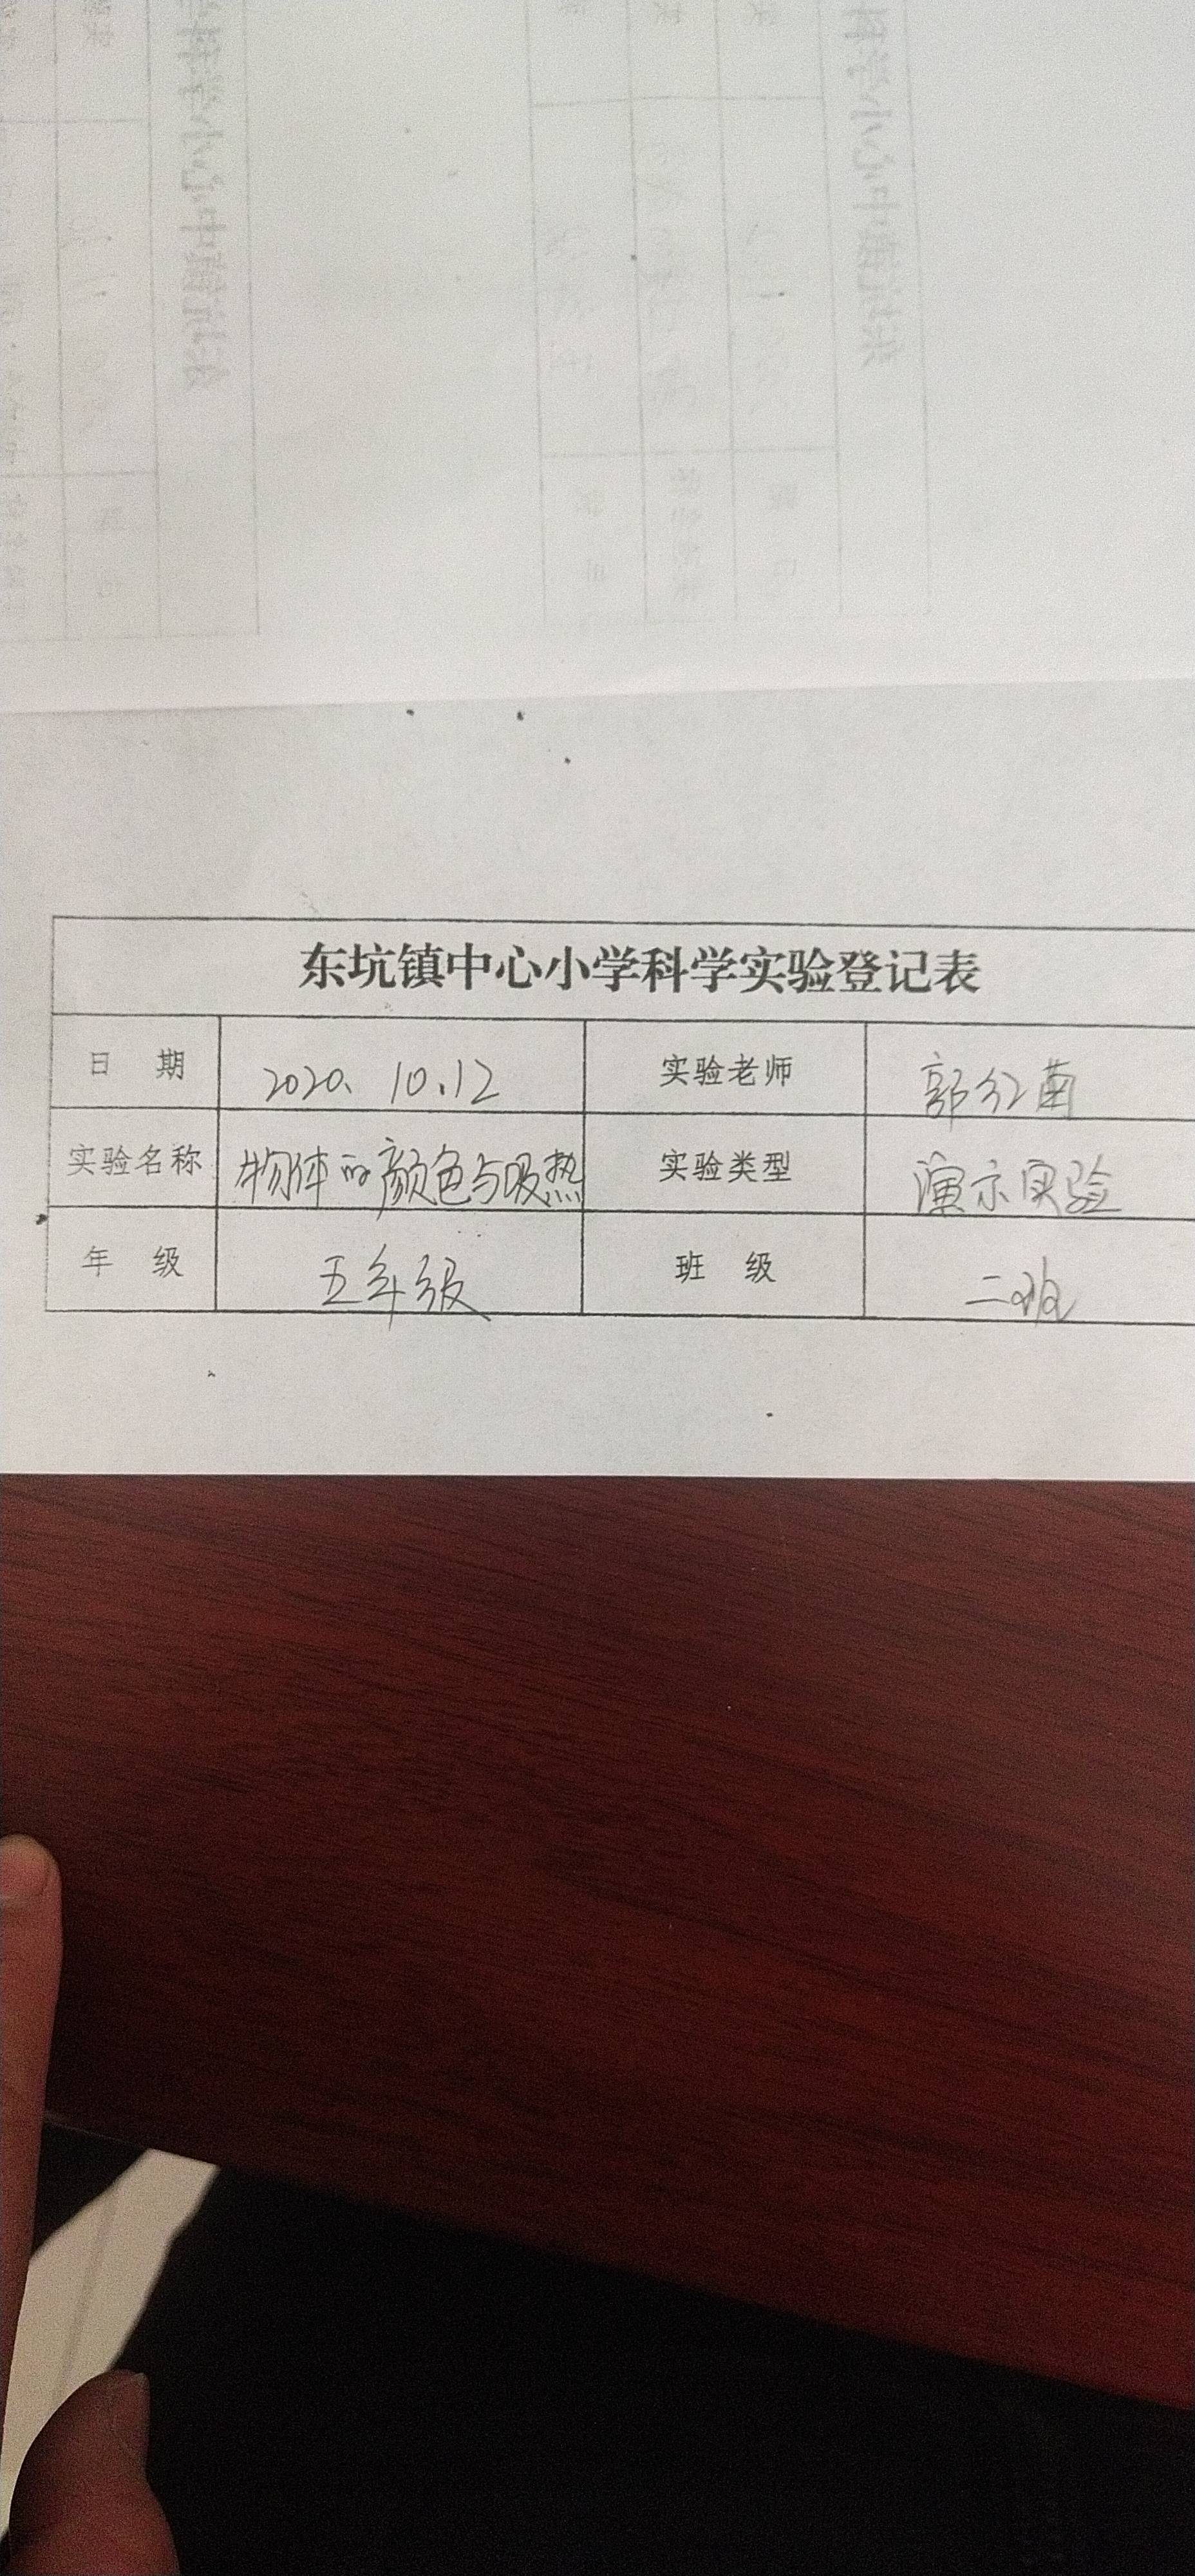 东坑镇中心小学科学实验登记表
日 期 2020. 10.12 实验老师 郭红菊
实验名称 物体的颜色与吸热 实验类型 演示实验
年 级 五年级 班 级 二班